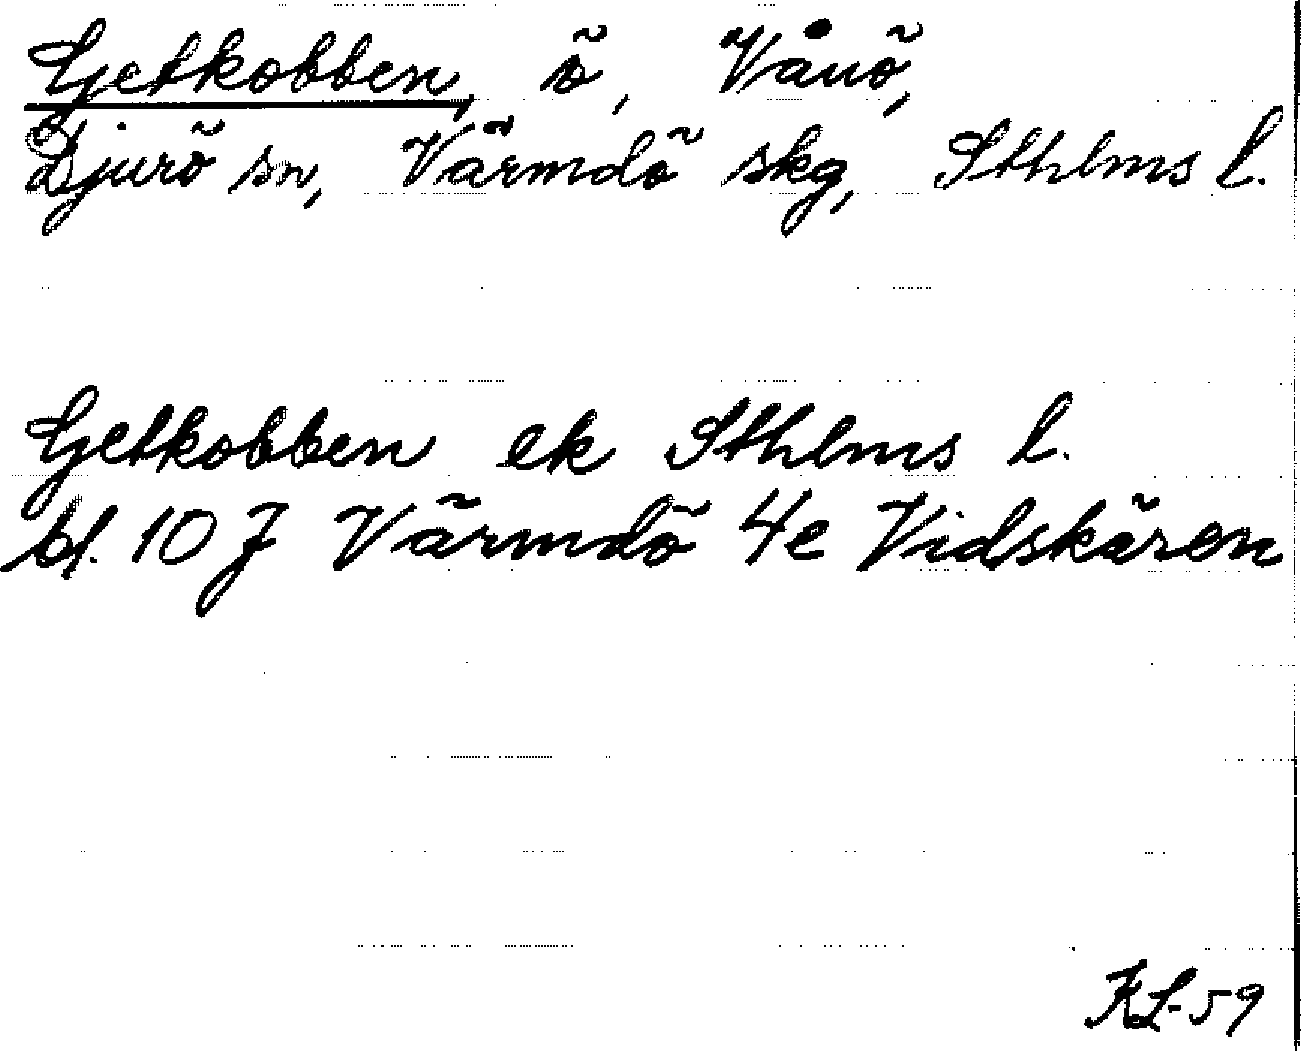 Getkobben, ö, Vånö,
Djurö sn, Värmdö skg, Sthlms l.
Getkobben ek Sthlms l.
bl. 10 J Värmdö 4e Vidskären
KL-59